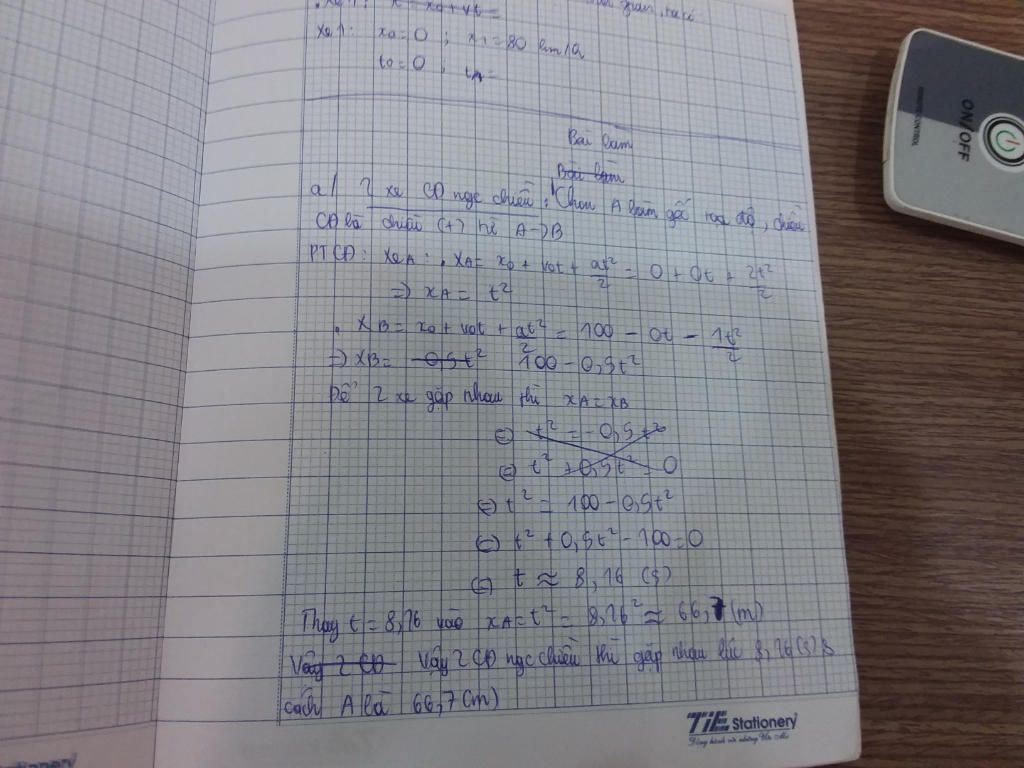 Xe 1: x = x0 + vt =
gian, ta có
Xe 1: x0 = 0 ; x1 = 80 km/h
t0 = 0 ; tA =
Bài làm
Bài làm
a/ 2 xe CĐ ngc chiều: Chọn A làm gốc toạ độ, chiều
CĐ là chiều (+) từ A->B
PTCĐ: Xe A: . XA = x0 + v0t + at²/2 = 0 + 0t + 2t²/2
=> xA = t²
. XB = x0 + v0t + at²/2 = 100 - 0t - 1t²/2
=> XB = -0,5t² 100 - 0,5t²
Để 2 xe gặp nhau thì xA = xB
<=> t² = -0,5t²
<=> t² + 0,5t² = 0
<=> t² = 100 - 0,5t²
<=> t² + 0,5t² - 100 = 0
<=> t ≈ 8,16 (s)
Thay t = 8,16 vào xA = t² = 8,16² ≈ 66,7 (m)
Vậy 2 CĐ Vậy 2 CĐ ngc chiều thì gặp nhau lúc 8,16(s) &
cách A là 66,7 (m)
TiE Stationery
Đồng hành với những Ước Mơ
ON/OFF
REMOTE CONTROL